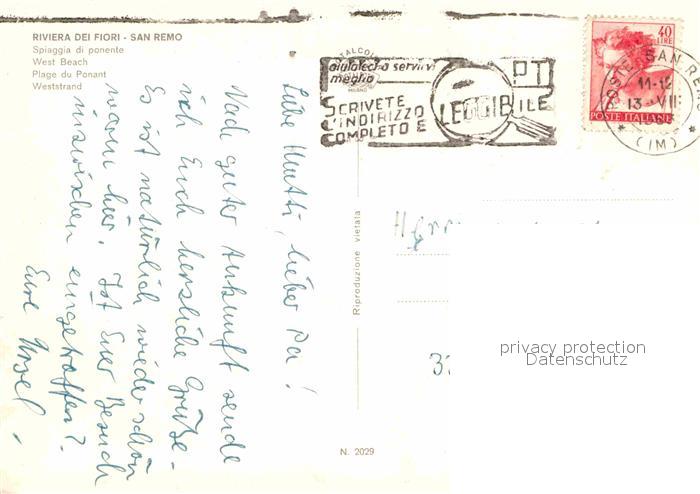 RIVIERA DEI FIORI - SAN REMO
Spiaggia di ponente
West Beach
Plage du Ponant
Weststrand
aiutateci a servirvi
meglio
PT
SCRIVETE
L'INDIRIZZO
COMPLETO E LEGGIBILE
40
LIRE
POSTE ITALIANE
SAN RE
11-12
13 VII
(IM)
Liebe Mutti, lieber Pa!
Nach guter Ankunft sende
ich Euch herzliche Grüße.
Es ist natürlich wieder schön
warm hier. Ist Euer Besuch
inzwischen eingetroffen?
Eure Ursel.
Herrn
Riproduzione vietata
N. 2029
privacy protection
Datenschutz